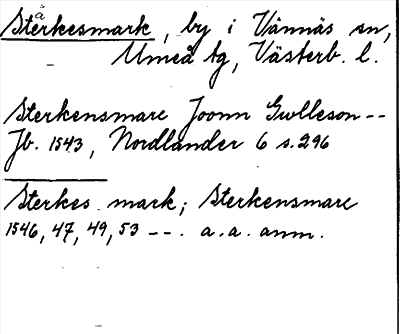 Sterkesmark, by i Vännäs sn,
Umeå tg, Västerb. l.
Sterkensmarc Joonn Gwlleson --
Jb. 1543, Nordlander 6 s. 296
Sterkes mark; Sterkensmarc
1546, 47, 49, 53 --. a. a. anm.